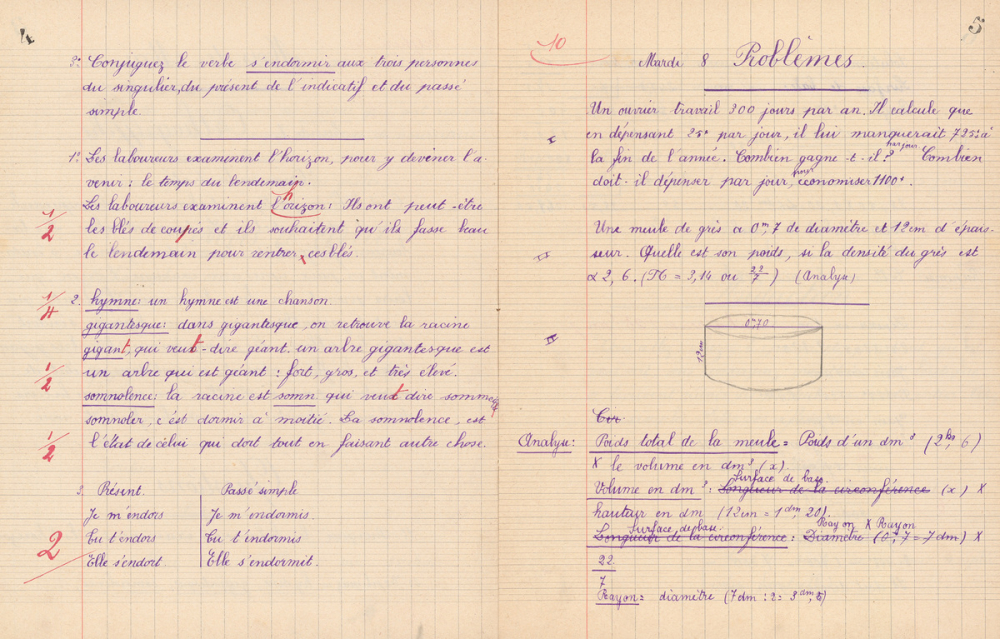 4
3º Conjuguez le verbe s'endormir aux trois personnes
du singulier, du présent de l'indicatif et du passé
simple.
1º Les laboureurs examenent l'horizon, pour y deviner l'a-
venir : le temps du lendemain.
Les laboureurs examinent l'horizon : Ils ont peut-être
1/2 les blés de coupés et ils souhaitent qu'ils fasse beau
le lendemain pour rentrer ces blés.
1/4 2. hymne : un hymne est une chanson.
gigantesque : dans gigantesque, on retrouve la racine
gigant, qui veut-dire géant. un arbre gigantesque est
1/2 un arbre qui est géant : fort, gros, et très élevé.
somnolence : la racine est somn qui veut dire
somnoler, c'est dormir à moitié. La somnolence, est
1/2 l'état de celui qui dort tout en faisant autre chose.
3. Présent. Passé simple
Je m'endors Je m'endormis.
2 Tu t'endors Tu t'endormis
Elle s'endort Elle s'endormit.
5
10
Mardi 8 Problèmes.
Un ouvrier travail 300 jours par an. Il calcule que
I en dépensant 25f par jour, il lui manquerait 725f à
la fin de l'année. Combien gagne-t-il par jour? Combien
doit-il dépenser par jour, pour économiser 1100f.
Une meule de grès a 0m,7 de diamètre et 12cm d'épais-
II seur. Quelle est son poids, si la densité du grès est
α 2,6. (π = 3,14 ou 22/7) (Analyse)
II
0m70
12cm
Cir
Analyse : Poids total de la meule = Poids d'un dm³ (2kg,6)
X le volume en dm³ (x)
Surface de base.
Volume en dm³ : Longueur de la circonférence (x) X
hauteur en dm (12cm = 1dm,20).
Surface de base Rayon X Rayon
Longueur de la circonférence : Diamètre (0m,7 = 7dm) X
22
7
Rayon = diamètre (7dm : 2 = 3dm,5)